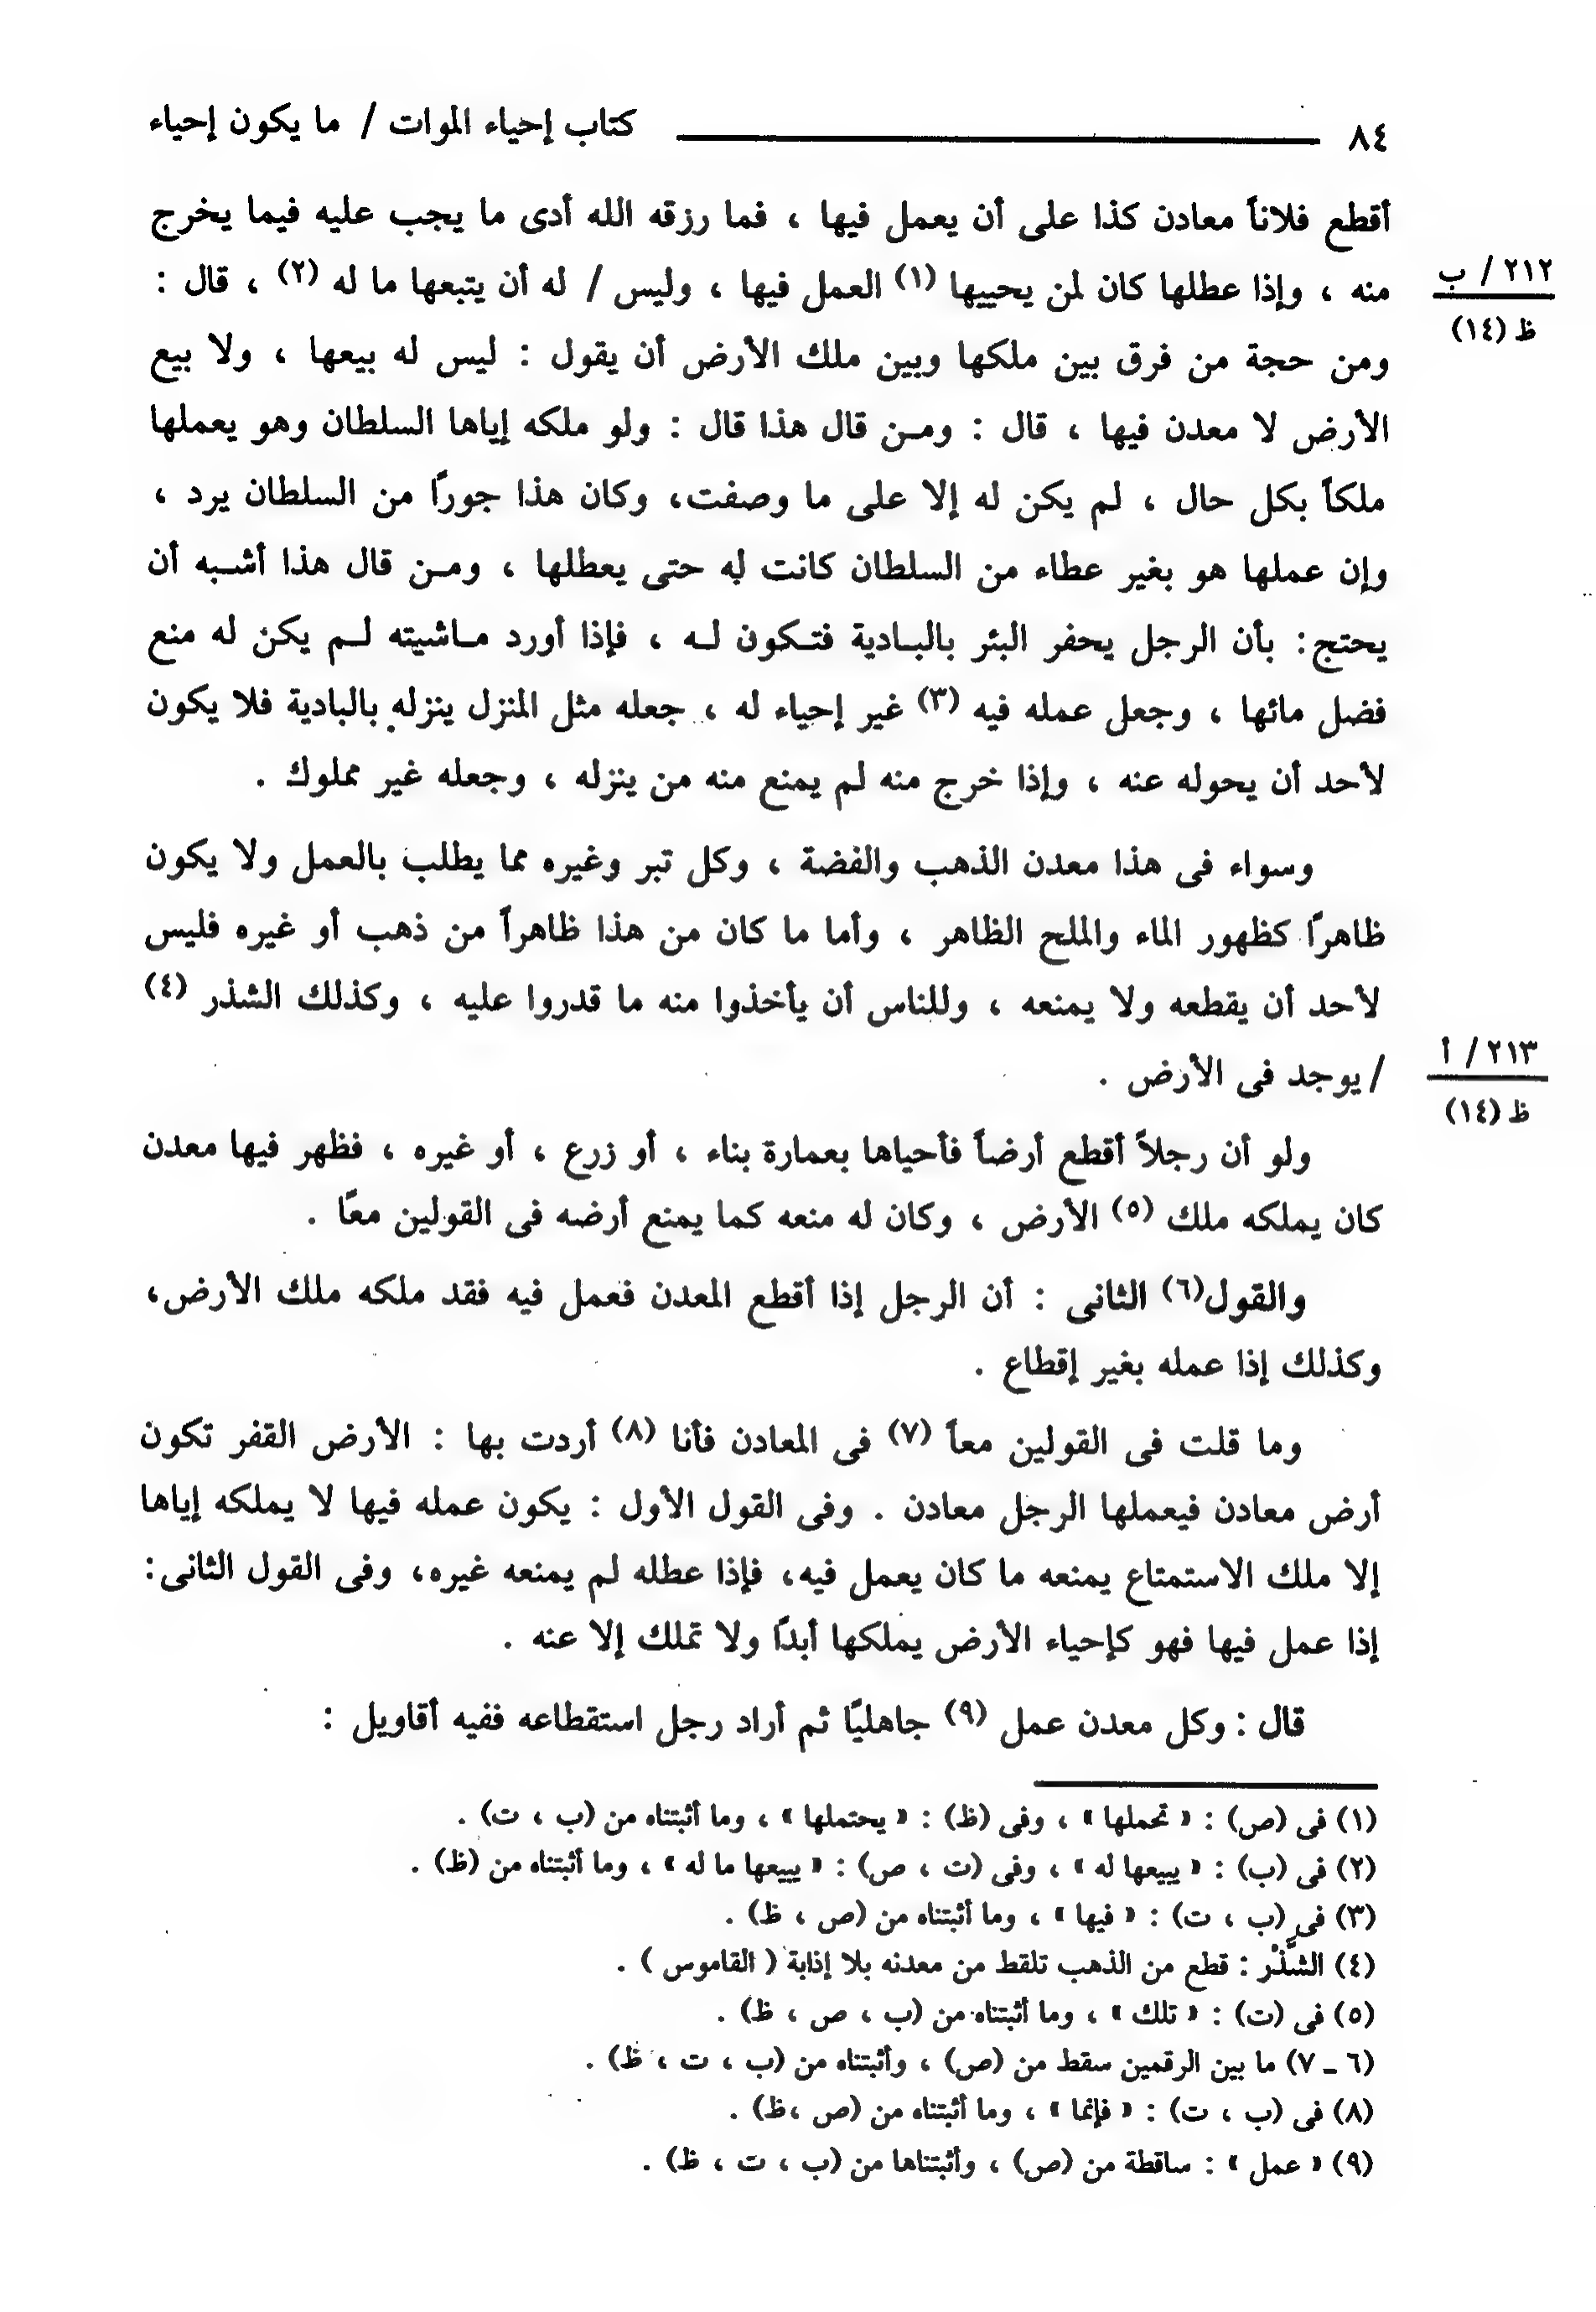 ٨٤ كتاب إحياء الموات / ما يكون إحياء
أقطع فلاناً معادن كذا على أن يعمل فيها ، فما رزقه الله أدى ما يجب عليه فيما يخرج
منه ، وإذا عطلها كان لمن يحييها (١) العمل فيها ، وليس / له أن يتبعها ما له (٢) ، قال :
٢١٢ / ب
ظ (١٤)
ومن حجة من فرق بين ملكها وبين ملك الأرض أن يقول : ليس له بيعها ، ولا بيع
الأرض لا معدن فيها ، قال : ومن قال هذا قال : ولو ملكه إياها السلطان وهو يعملها
ملكاً بكل حال ، لم يكن له إلا على ما وصفت، وكان هذا جورًا من السلطان يرد ،
وإن عملها هو بغير عطاء من السلطان كانت له حتى يعطلها ، ومن قال هذا أشبه أن
يحتج: بأن الرجل يحفر البئر بالبادية فتكون له ، فإذا أورد ماشيته لم يكن له منع
فضل مائها ، وجعل عمله فيه (٣) غير إحياء له ، جعله مثل المنزل ينزله بالبادية فلا يكون
لأحد أن يحوله عنه ، وإذا خرج منه لم يمنع منه من ينزله ، وجعله غير مملوك .
وسواء فى هذا معدن الذهب والفضة ، وكل تبر وغيره مما يطلب بالعمل ولا يكون
ظاهرًا كظهور الماء والملح الظاهر ، وأما ما كان من هذا ظاهراً من ذهب أو غيره فليس
لأحد أن يقطعه ولا يمنعه ، وللناس أن يأخذوا منه ما قدروا عليه ، وكذلك الشذر (٤)
/ يوجد فى الأرض .
٢١٣ / أ
ظ (١٤)
ولو أن رجلاً أقطع أرضاً فأحياها بعمارة بناء ، أو زرع ، أو غيره ، فظهر فيها معدن
كان يملكه ملك (٥) الأرض ، وكان له منعه كما يمنع أرضه فى القولين معًا .
والقول(٦) الثانى : أن الرجل إذا أقطع المعدن فعمل فيه فقد ملكه ملك الأرض،
وكذلك إذا عمله بغير إقطاع .
وما قلت فى القولين معاً (٧) فى المعادن فأنا (٨) أردت بها : الأرض القفر تكون
أرض معادن فيعملها الرجل معادن . وفى القول الأول : يكون عمله فيها لا يملكه إياها
إلا ملك الاستمتاع يمنعه ما كان يعمل فيه، فإذا عطله لم يمنعه غيره، وفى القول الثانى:
إذا عمل فيها فهو كإحياء الأرض يملكها أبدًا ولا تملك إلا عنه .
قال : وكل معدن عمل (٩) جاهليًا ثم أراد رجل استقطاعه ففيه أقاويل :
(١) فى (ص) : « تحملها » ، وفى (ظ) : « يحتملها » ، وما أثبتناه من (ب ، ت) .
(٢) فى (ب) : « يبيعها له » ، وفى (ت ، ص) : « يبيعها ما له » ، وما أثبتناه من (ظ) .
(٣) فى (ب ، ت) : « فيها » ، وما أثبتناه من (ص ، ظ) .
(٤) الشَّذْر : قطع من الذهب تلقط من معدنه بلا إذابة ( القاموس ) .
(٥) فى (ت) : « تلك » ، وما أثبتناه من (ب ، ص ، ظ) .
(٦ ـ ٧) ما بين الرقمين سقط من (ص) ، وأثبتناه من (ب ، ت ، ظ) .
(٨) فى (ب ، ت) : « فإنما » ، وما أثبتناه من (ص ،ظ) .
(٩) « عمل » : ساقطة من (ص) ، وأثبتناها من (ب ، ت ، ظ) .